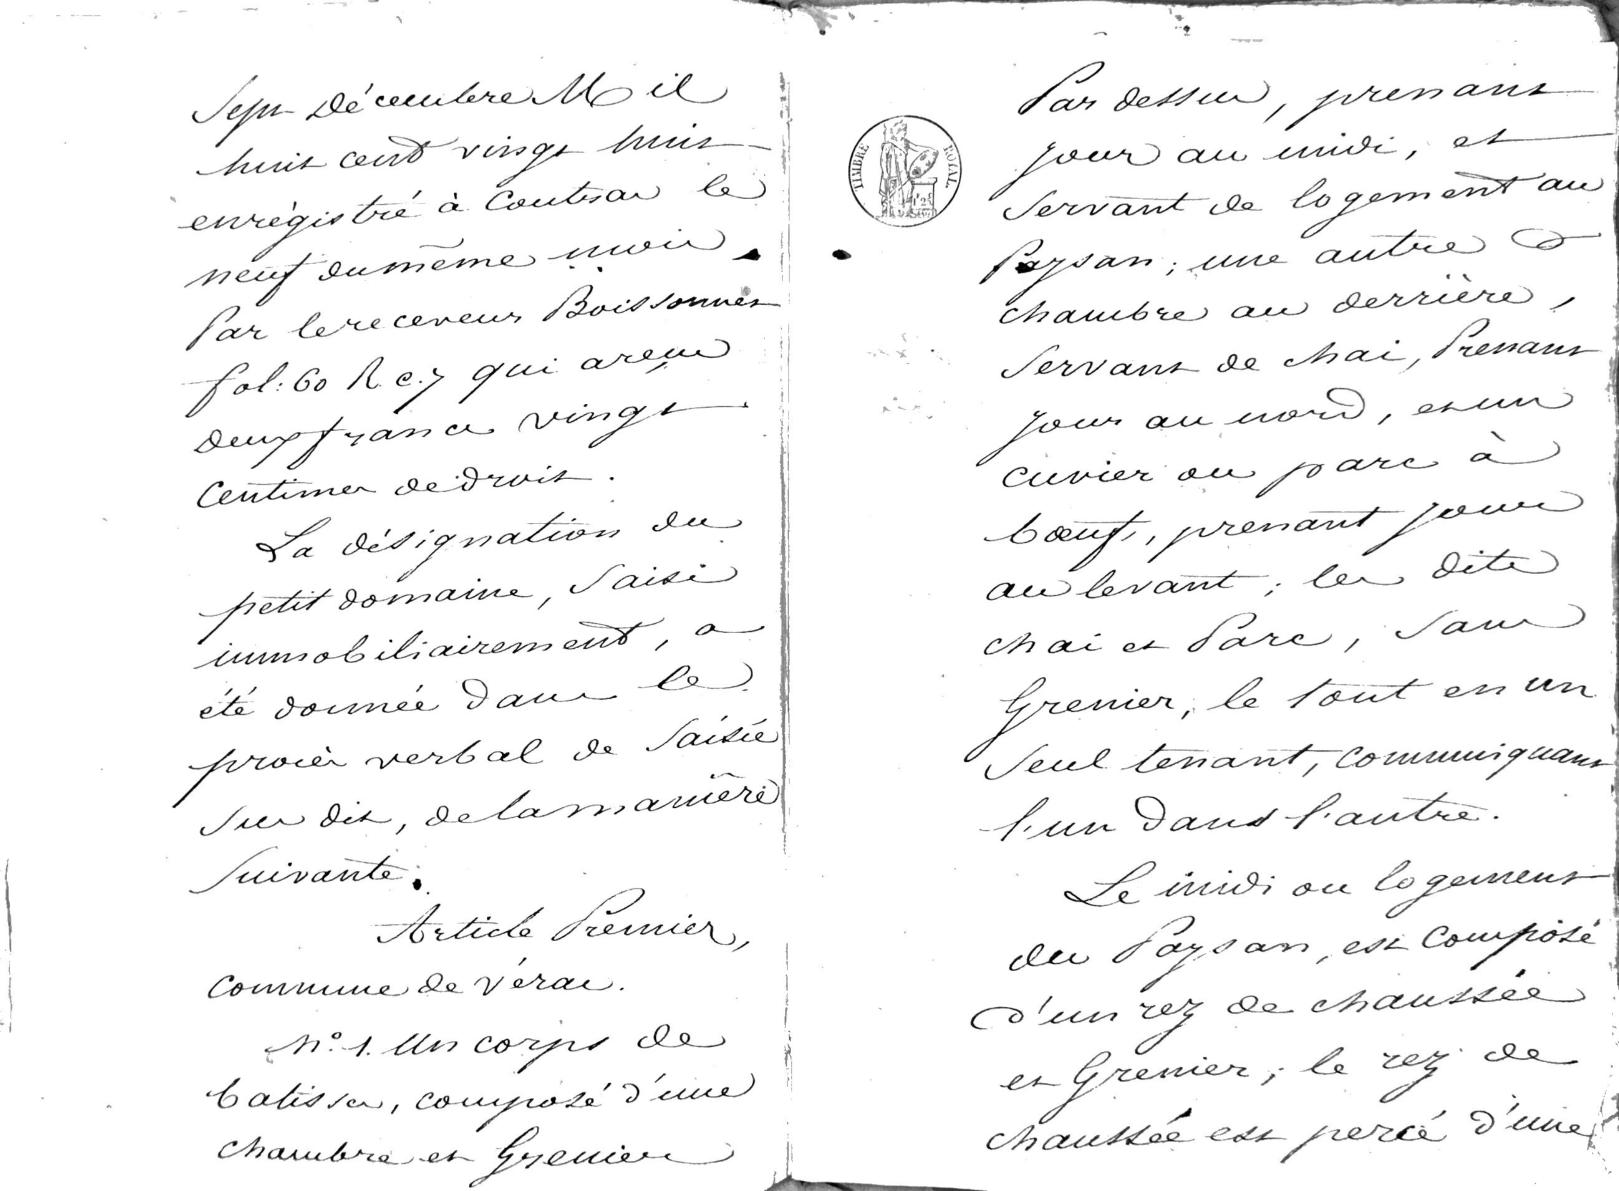 Sept Décembre Mil
huit cent vingt huit
enrégistré à Coutras le
neuf du même mois
Par le receveur Boissonnet
fol: 60 R. c. 7 qui a reçu
deux francs vingt
Centimes de droit.
La désignation du
petit domaine, Saisi
immobiliairement, a
été donnée dans le
procès verbal de Saisie
Sus dit, de la manière
Suivante.
Article Premier,
Commune de Vérac.
N.º 1. Un corps de
batisses, composé d'une
chambre et Grenier
TIMBRE ROYAL
Par dessus, prenant
jour au midi, et
Servant de logement au
Paysan; une autre
chambre au derrière,
Servant de chai, Prenant
jour au nord, et un
cuvier ou parc à
bœufs, prenant jour
au levant; les dits
chai et Parc, Sans
Grenier, le tout en un
Seul tenant, communiquant
l'un dans l'autre.
Le midi ou logement
du Paysan, est Composé
d'un rez de chaussée
et Grenier; le rez de
chaussée est percé d'une